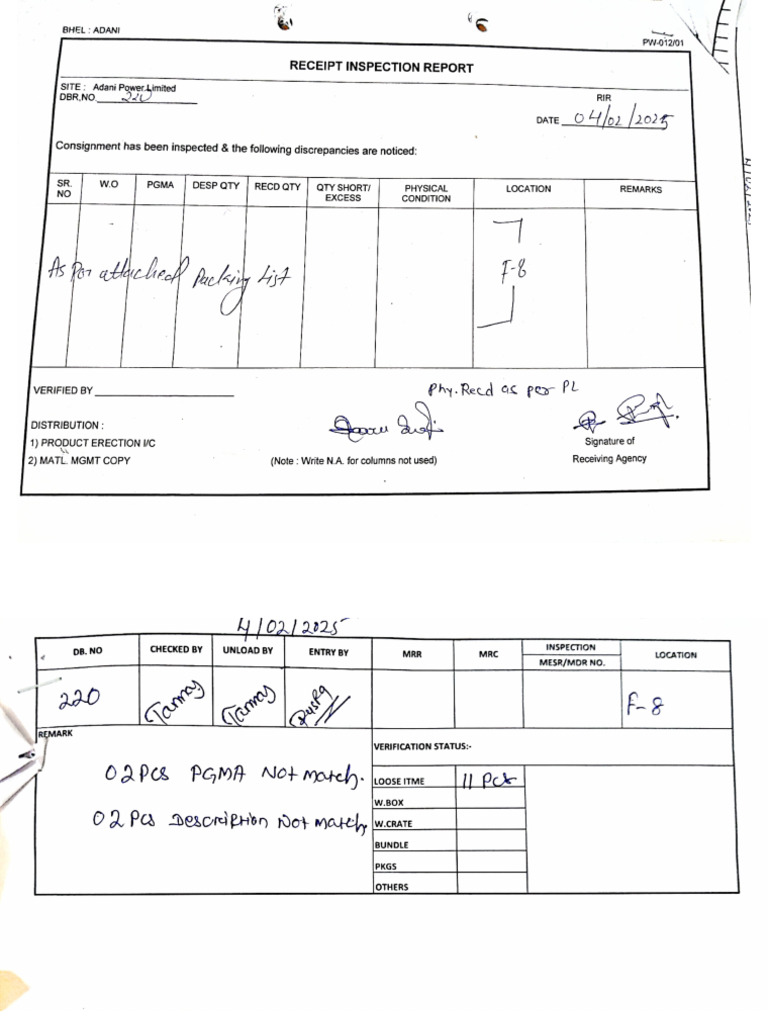 BHEL : ADANI
PW-012/01
RECEIPT INSPECTION REPORT
SITE : Adani Power Limited
DBR.NO. 220
RIR
DATE 04/02/2025
Consignment has been inspected & the following discrepancies are noticed:
SR. NO W.O PGMA DESP QTY RECD QTY QTY SHORT/ EXCESS PHYSICAL CONDITION LOCATION REMARKS
As Per attached Packing List F-8
VERIFIED BY
Phy. Recd as per PL
DISTRIBUTION :
1) PRODUCT ERECTION I/C
2) MATL. MGMT COPY
(Note : Write N.A. for columns not used)
Signature of
Receiving Agency
4/02/2025
DB. NO CHECKED BY UNLOAD BY ENTRY BY MRR MRC INSPECTION MESR/MDR NO. LOCATION
220 Tanmay Tanmay F-8
REMARK
02 Pcs PGMA Not match.
02 Pcs Description Not match
VERIFICATION STATUS:-
LOOSE ITME 11 Pcs
W.BOX
W.CRATE
BUNDLE
PKGS
OTHERS